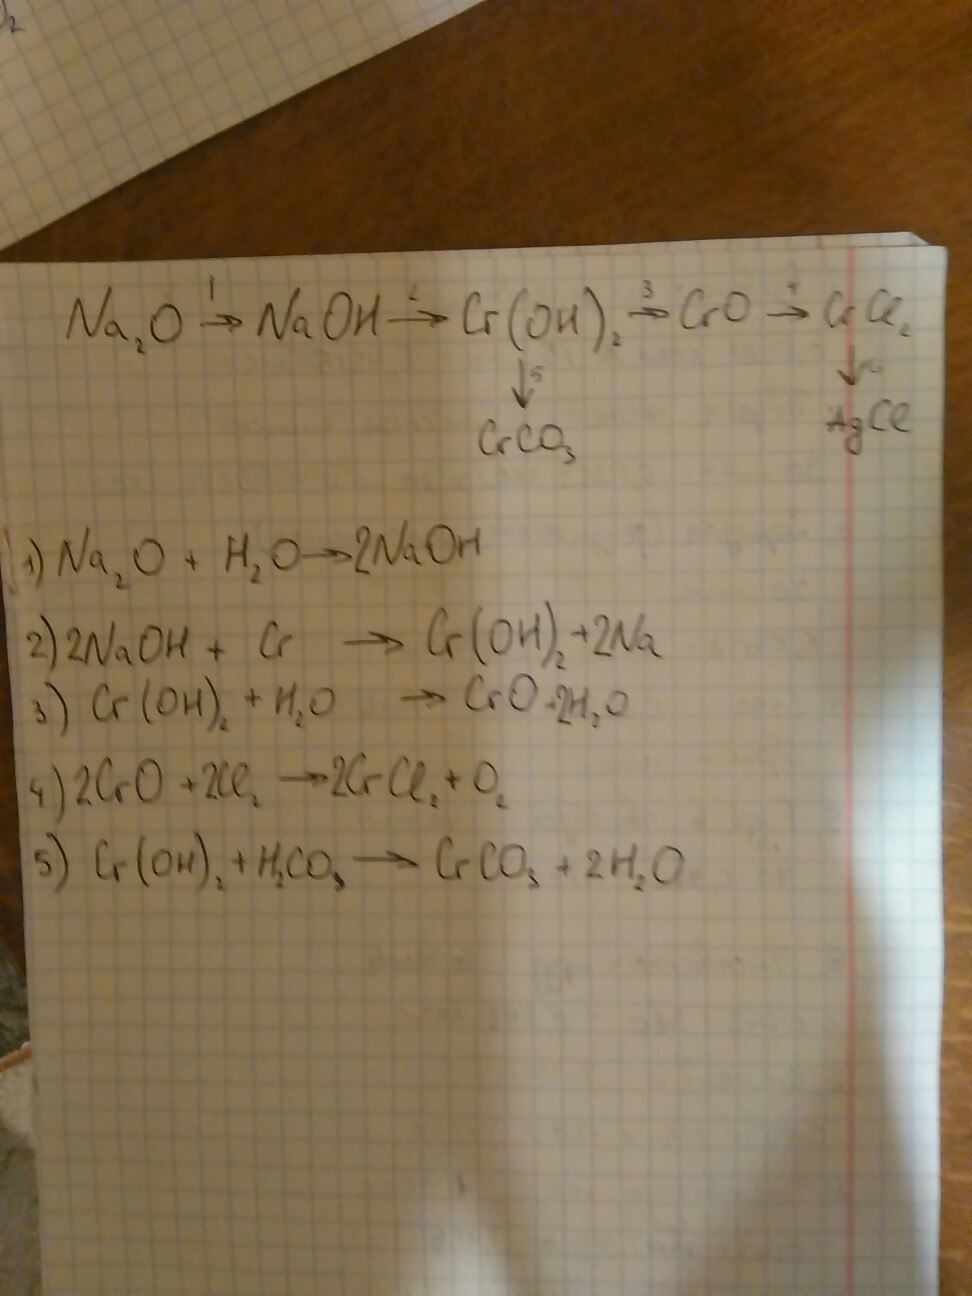 O₂
Na₂O →¹ NaOH →² Cr(OH)₂ →³ CrO →⁴ CrCl₂
↓5 ↓6
CrCO₃ AgCl
1) Na₂O + H₂O → 2NaOH
2) 2NaOH + Cr → Cr(OH)₂ + 2Na
3) Cr(OH)₂ + H₂O → CrO + 2H₂O
4) 2CrO + 2Cl₂ → 2CrCl₂ + O₂
5) Cr(OH)₂ + H₂CO₃ → CrCO₃ + 2H₂O